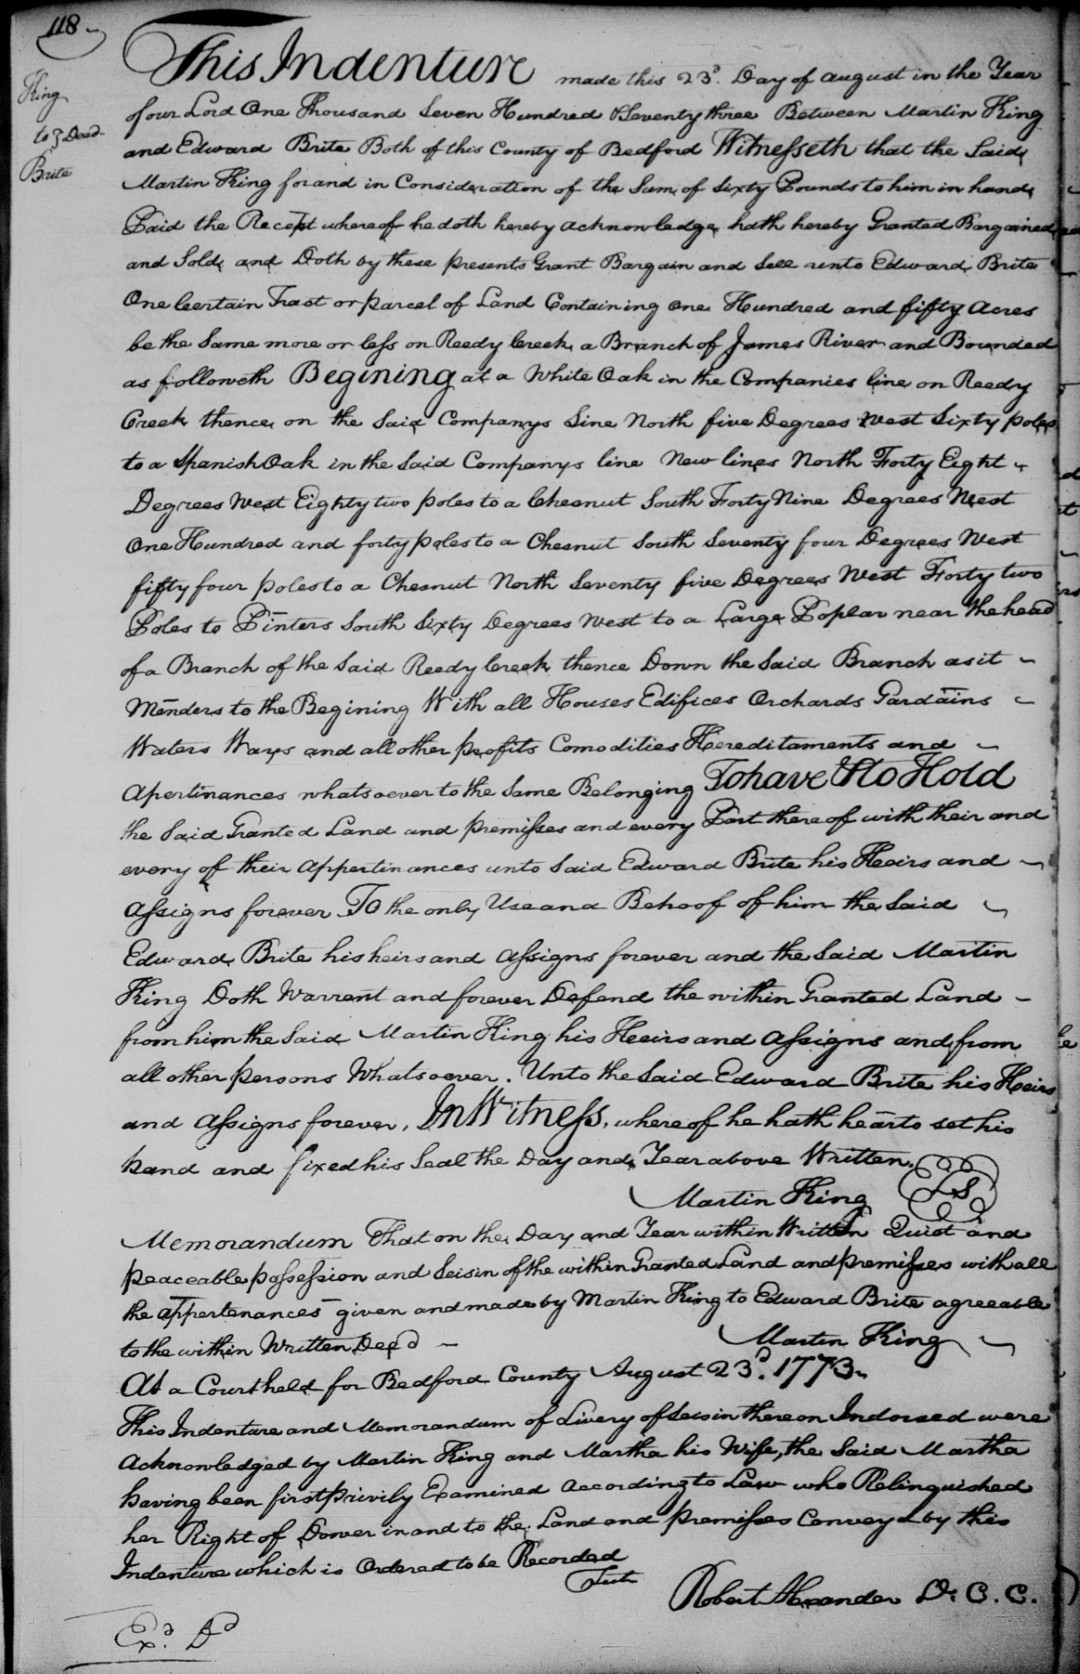 118
King
to } Deed
Brite
This Indenture made this 23d. Day of August in the Year
of our Lord One Thousand Seven Hundred & Seventy three Between Martin King
and Edward Brite Both of this County of Bedford Witnesseth that the Said
Martin King for and in Consideration of the Sum of Sixty Pounds to him in hand
Paid the Recept whereof he doth hereby acknowledge hath hereby Granted Bargained
and Sold and Doth by these presents Grant Bargain and Sell unto Edward Brite
One Certain Trast or parcel of Land Containing one Hundred and fifty Acres
be the Same more or less on Reedy Creek a Branch of James River and Bounded
as followeth Begining at a White Oak in the Companies line on Reedy
Creek thence on the Said Companys Line North five Degrees West Sixty poles
to a Spanish Oak in the Said Companys line New lines North Forty Eight
Degrees West Eighty two poles to a Chesnut South Forty Nine Degrees West
One Hundred and forty poles to a Chesnut South Seventy four Degrees West
fifty four poles to a Chesnut North Seventy five Degrees West Forty two
Poles to Pinters South Sixty Degrees West to a Large Poplar near the head
of a Branch of the Said Reedy Creek thence Down the Said Branch as it
Menders to the Begining With all Houses Edifices Orchards Gardains
Waters Ways and all other profits Comodities Hereditaments and
Apertinances whatsoever to the Same Belonging To have & to Hold
the Said Granted Land and premisses and every Part thereof with their and
every of their Appertinances unto Said Edward Brite his Heairs and
Assigns forever To the only Use and Behoof of him the Said
Edward Brite his heirs and Assigns forever and the Said Martin
King Doth Warrent and forever Defend the within Granted Land
from him the Said Martin King his Heairs and Assigns and from
all other persons Whatsoever. Unto the Said Edward Brite his Heairs
and Assigns forever, In Witness, whereof he hath hearto set his
hand and fixed his Seal the Day and Year above Written.
Martin King LS
Memorandum That on the Day and Year within Written Quiet and
peaceable possession and Seisin of the within Granted Land and premisses with all
the Appertenances given and made by Martin King to Edward Brite agreeable
to the within Written Deed
Martin King
At a Court held for Bedford County August 23d. 1773.
This Indenture and Memorandum of Livery of Seisin thereon Indorsed were
Acknowledged by Martin King and Martha his Wife, the Said Martha
having been first privily Examined According to Law who Relinquished
her Right of Dower in and to the Land and premisses Conveyd by this
Indenture which is Ordered to be Recorded
Test
Robert Alexander D. C. C.
Exd. Dd